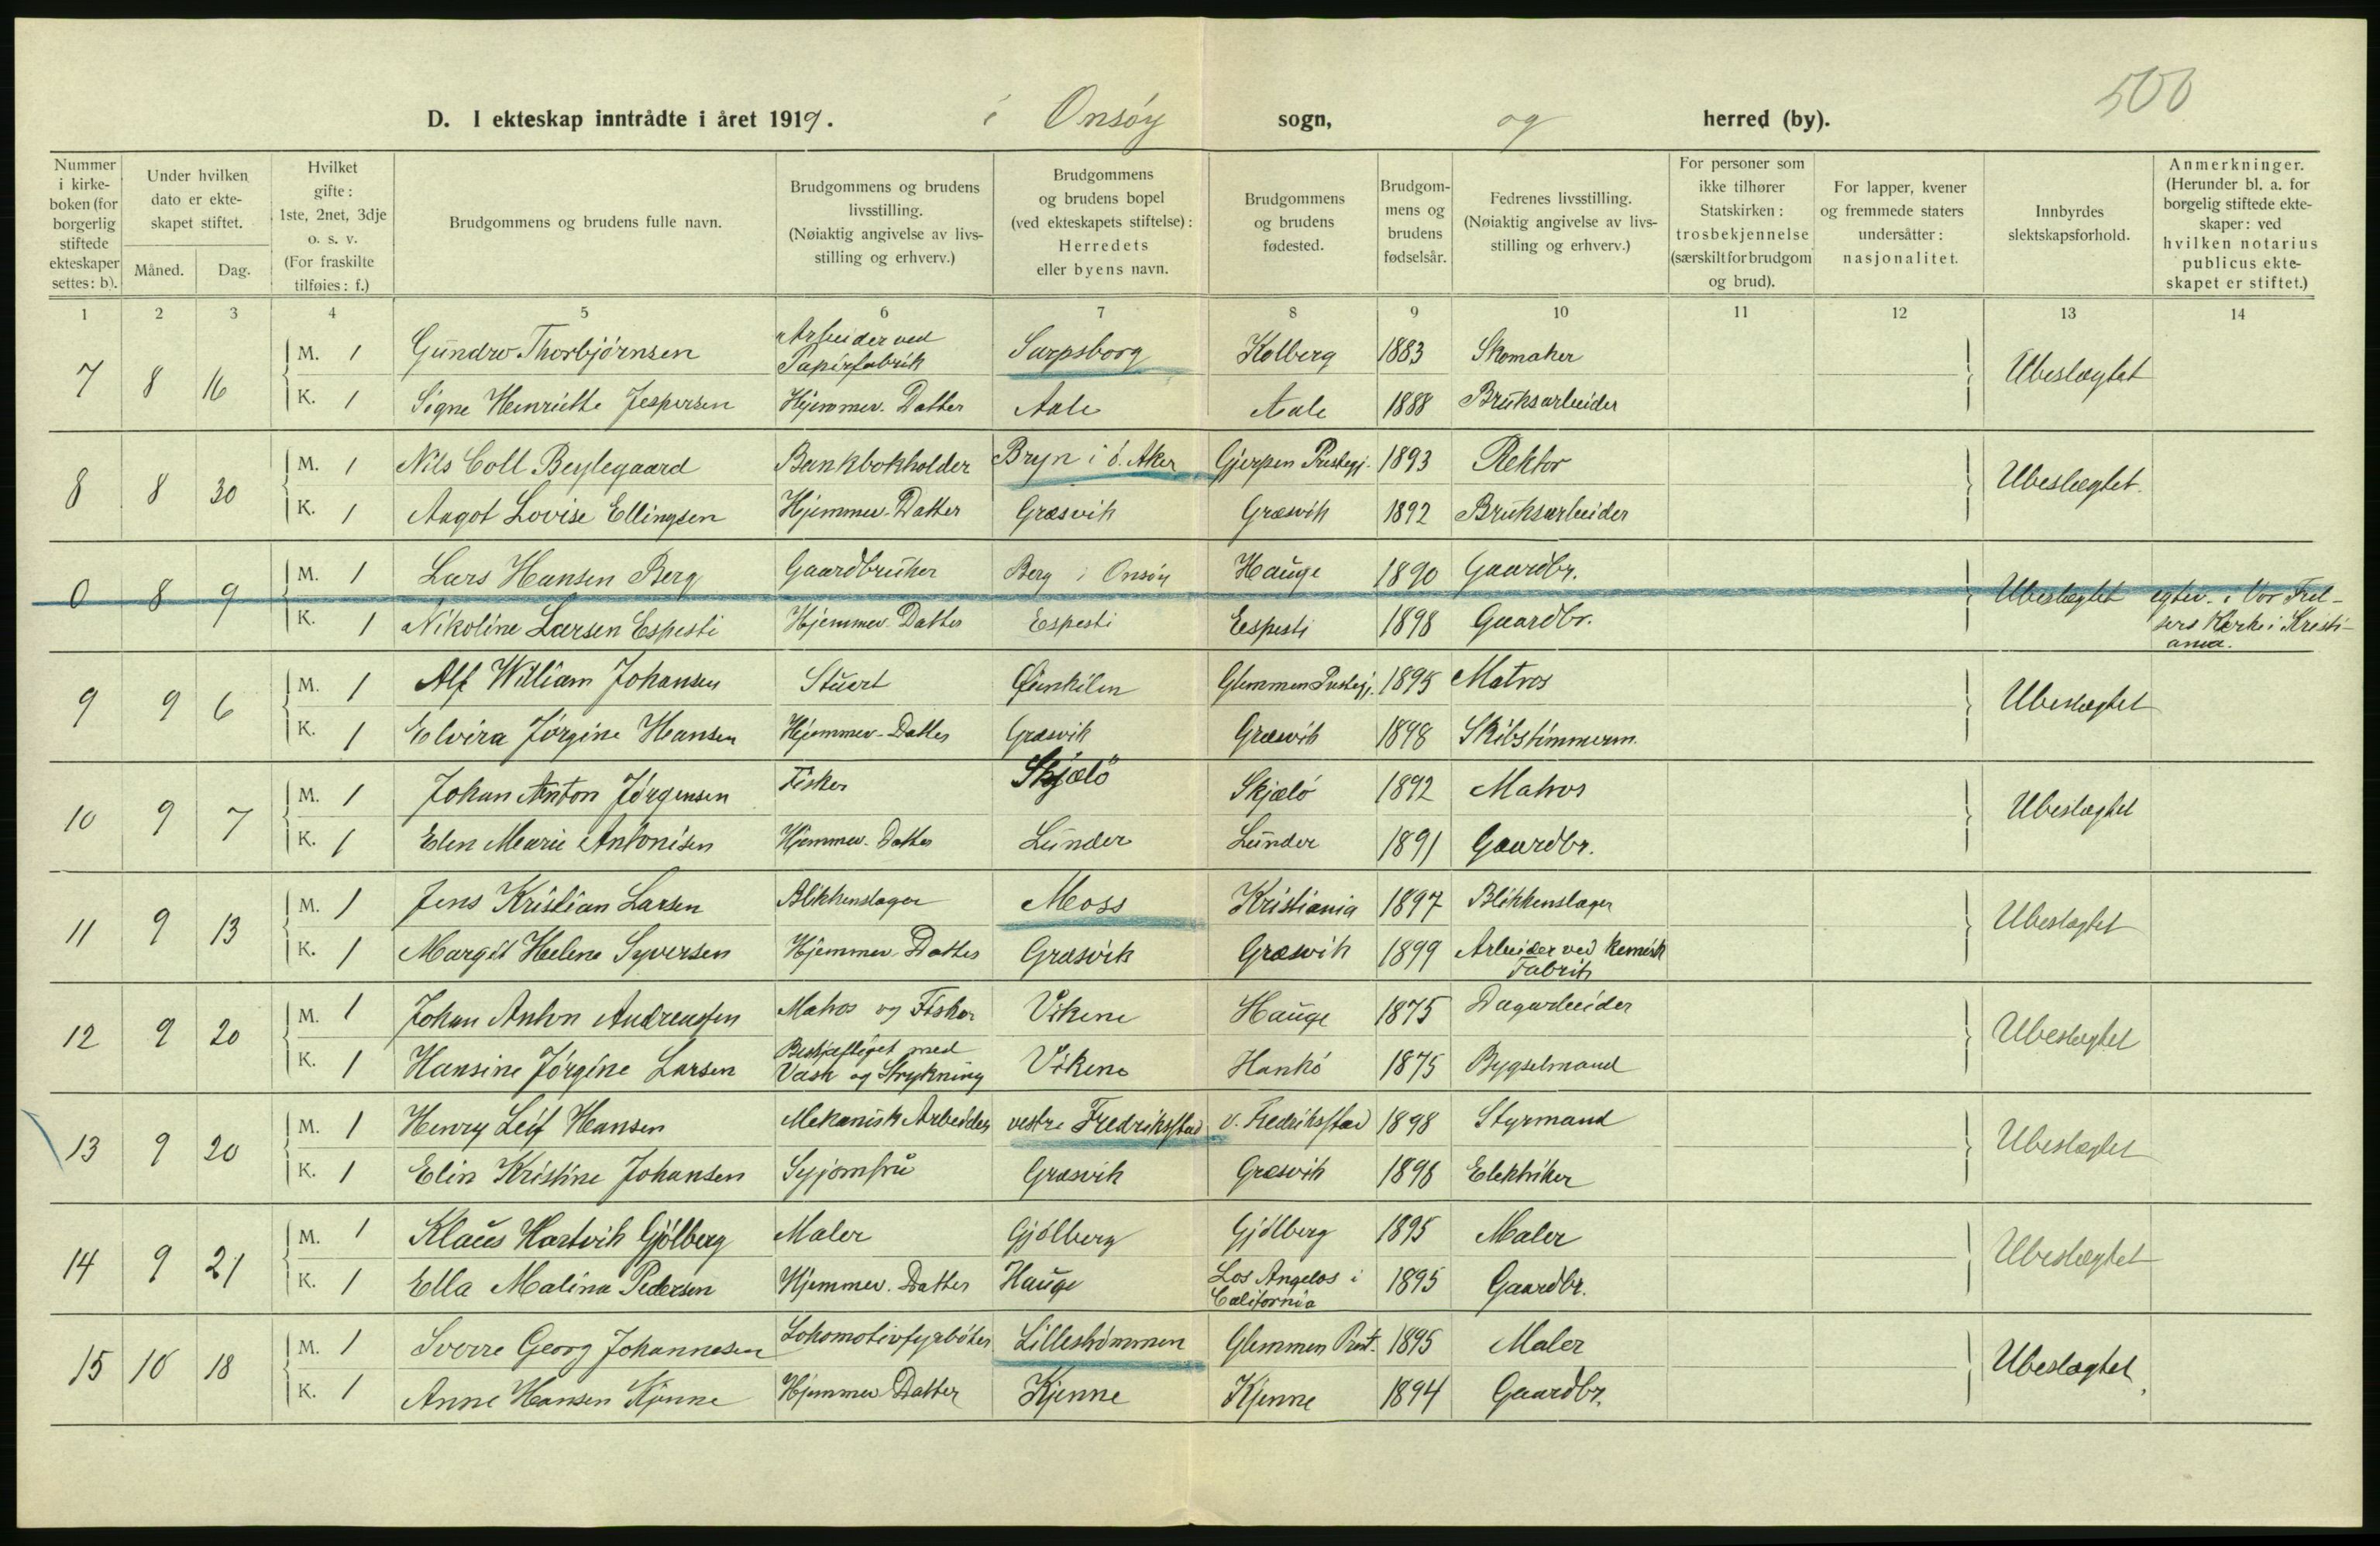 500
D. I ekteskap inntrådte i året 1919. i Onsøy sogn, og herred (by).
Nummer i kirke- boken (for borgerlig stiftede ekteskaper settes: b).
Under hvilken dato er ekte- skapet stiftet.
Måned. Dag.
Hvilket gifte: 1ste, 2net, 3dje o. s. v. (For fraskilte tilføies: f.)
Brudgommens og brudens fulle navn.
Brudgommens og brudens livsstilling. (Nøiaktig angivelse av livs- stilling og erhverv.)
Brudgommens og brudens bopel (ved ekteskapets stiftelse): Herredets eller byens navn.
Brudgommens og brudens fødested.
Brudgom- mens og brudens fødselsår.
Fedrenes livsstilling. (Nøiaktig angivelse av livs- stilling og erhverv.)
For personer som ikke tilhører Statskirken: trosbekjennelse (særskilt for brudgom og brud).
For lapper, kvener og fremmede staters undersåtter: nasjonalitet.
Innbyrdes slektskapsforhold.
Anmerkninger. (Herunder bl. a. for borgelig stiftede ekte- skaper: ved hvilken notarius publicus ekte- skapet er stiftet.)
1 2 3 4 5 6 7 8 9 10 11 12 13 14
7 8 16 M. 1 Gundro Thorbjörnsen Arbeider ved Papirfabrik Sarpsborg Kolberg 1883 Skomaker Ubeslægtet
K. 1 Signe Henriette Jespersen Hjemmev. Datter Aale Aale 1888 Bruksarbeider
8 8 30 M. 1 Nils Coll Beylegaard Bankbokholder Bryn i ö. Aker Gjerpen Prestegj. 1893 Rektor Ubeslægtet.
K. 1 Aagot Lovise Ellingsen Hjemmev. Datter Græsvik Græsvik 1892 Bruksarbeider
0 8 9 M. 1 Lars Hansen Berg Gaardbruker Berg i Onsöy Hauge 1890 Gaardbr. Ubeslægtet egtev. i Vor Frel- sers Kirke i Kristi- ania.
K. 1 Nikoline Larsen Espesti Hjemmev. Datter Espesti Espesti 1898 Gaardbr.
9 9 6 M. 1 Alf William Johansen Stuert Øienkilen Glemmen Prestegj. 1895 Matros Ubeslægtet
K. 1 Elvira Jörgine Hansen Hjemmev. Datter Græsvik Græsvik 1898 Skibstimmerm.
10 9 7 M. 1 Johan Anton Jörgensen Fisker Skjælö Skjælö 1892 Matros Ubeslægtet
K. 1 Elen Marie Antonisen Hjemmev. Datter Lunder Lunder 1891 Gaardbr.
11 9 13 M. 1 Jens Kristian Larsen Blikkenslager Moss Kristiania 1897 Blikkenslager Ubeslægtet
K. 1 Margit Helene Syversen Hjemmev. Datter Græsvik Græsvik 1899 Arbeider ved kemisk Fabrik
12 9 20 M. 1 Johan Anton Andreassen Matros og Fisker Vikene Hauge 1875 Dagarbeider Ubeslægtet
K. 1 Hansine Jörgine Larsen Beskjæftiget med Vask og Strykning Vikene Hankö 1875 Bygselmand
13 9 20 M. 1 Henry Leif Hansen Mekanisk Arbeider vestre Fredriksstad v. Fredriksstad 1898 Styrmand Ubeslægtet
K. 1 Elin Kristine Johansen Syjomfru Græsvik Græsvik 1898 Elektriker
14 9 21 M. 1 Klaus Hartvik Gjölberg Maler Gjölberg Gjölberg 1895 Maler Ubeslægtet
K. 1 Ella Malina Pedersen Hjemmev. Datter Hauge Los Angelos i California 1895 Gaardbr.
15 10 18 M. 1 Sverre Georg Johannesen Lokomotivfyrböter Lilleströmmen Glemmen Prest. 1895 Maler Ubeslægtet.
K. 1 Anne Hansen Kjenne Hjemmev. Datter Kjenne Kjenne 1894 Gaardbr.